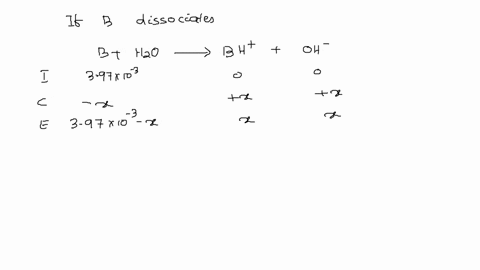 If B dissociates
B + H2O ⟶ BH⁺ + OH⁻
I 3.97×10⁻³ 0 0
C -x +x +x
E 3.97×10⁻³-x x x